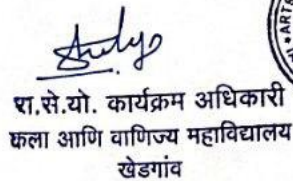 रा.से.यो. कार्यक्रम अधिकारी
कला आणि वाणिज्य महाविद्यालय
खेडगांव
ARTS